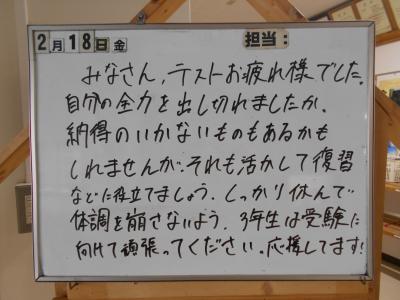 2月18日金 担当:
みなさん、テストお疲れ様でした。
自分の全力を出し切れましたか。
納得のいかないものもあるかも
しれませんが、それも活かして復習
などに役立てましょう。しっかり休んで
体調を崩さないよう。3年生は受験に
向けて頑張ってください。応援してます!